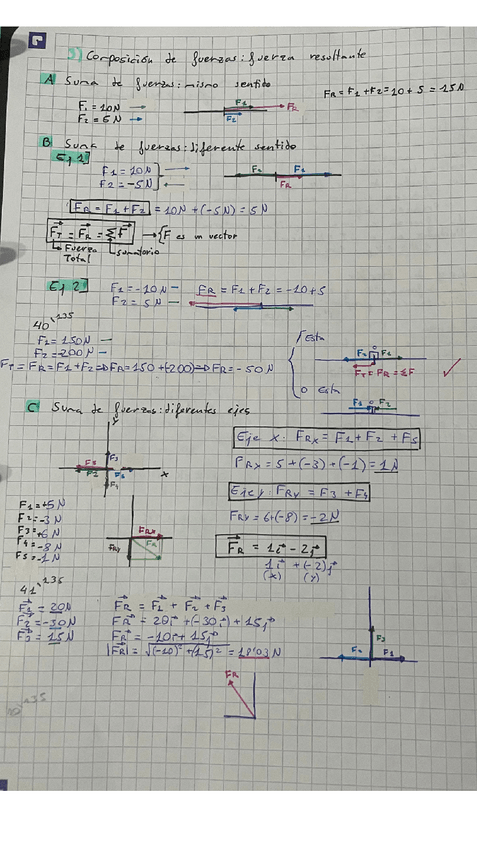 3) Composición de fuerzas: fuerza resultante
A Suma de fuerzas: mismo sentido
F₁ = 10N →
F₂ = 5N →
F₁
F₂
FR
FR = F₁ + F₂ = 10 + 5 = 15N
B Suma de fuerzas: diferente sentido
Ej 1]
F₁ = 10N →
F₂ = -5N ←
F₂ F₁
FR
FR = F₁ + F₂ = 10N + (-5N) = 5N
FT = FR = ΣF → {F es un vector
Fuerza Total
sumatorio
Ej 2]
F₁ = -10N —
F₂ = 5N —
FR = F₁ + F₂ = -10 + 5
40, 135
F₁ = 150N —
F₂ = -200N —
FT = FR = F₁ + F₂ ⇒ FR = 150 + (-200) ⇒ FR = -50N
Esta
F₂ F₁
FT = FR = ΣF
o Esta
F₁ F₂
C Suma de fuerzas: diferentes ejes
y
x
F₃
F₅
F₂
F₁
F₄
Eje x: FRx = F₁ + F₂ + F₅
FRx = 5 + (-3) + (-1) = 1N
Eje y: FRy = F₃ + F₄
FRy = 6 + (-8) = -2N
F₁ = +5N
F₂ = -3N
F₃ = +6N
F₄ = -8N
F₅ = -1N
FRx
FRy
FR
FR = 1i - 2j
1i + (-2)j
(x) (y)
41, 135
F₁ = 20N
F₂ = -30N
F₃ = 15N
FR = F₁ + F₂ + F₃
FR = 20i + (-30i) + 15j
FR = -10i + 15j
|FR| = √(-10)² + (15)² = 18'03N
F₃
F₂ F₁
FR